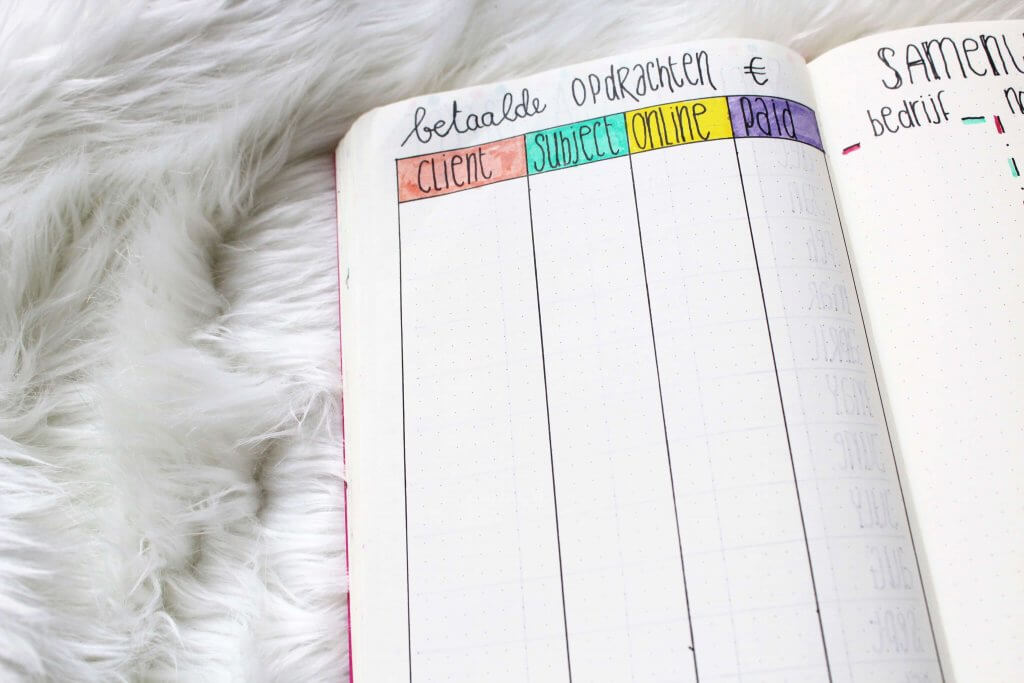 betaalde opdrachten €
client subject online paid
bedrijf